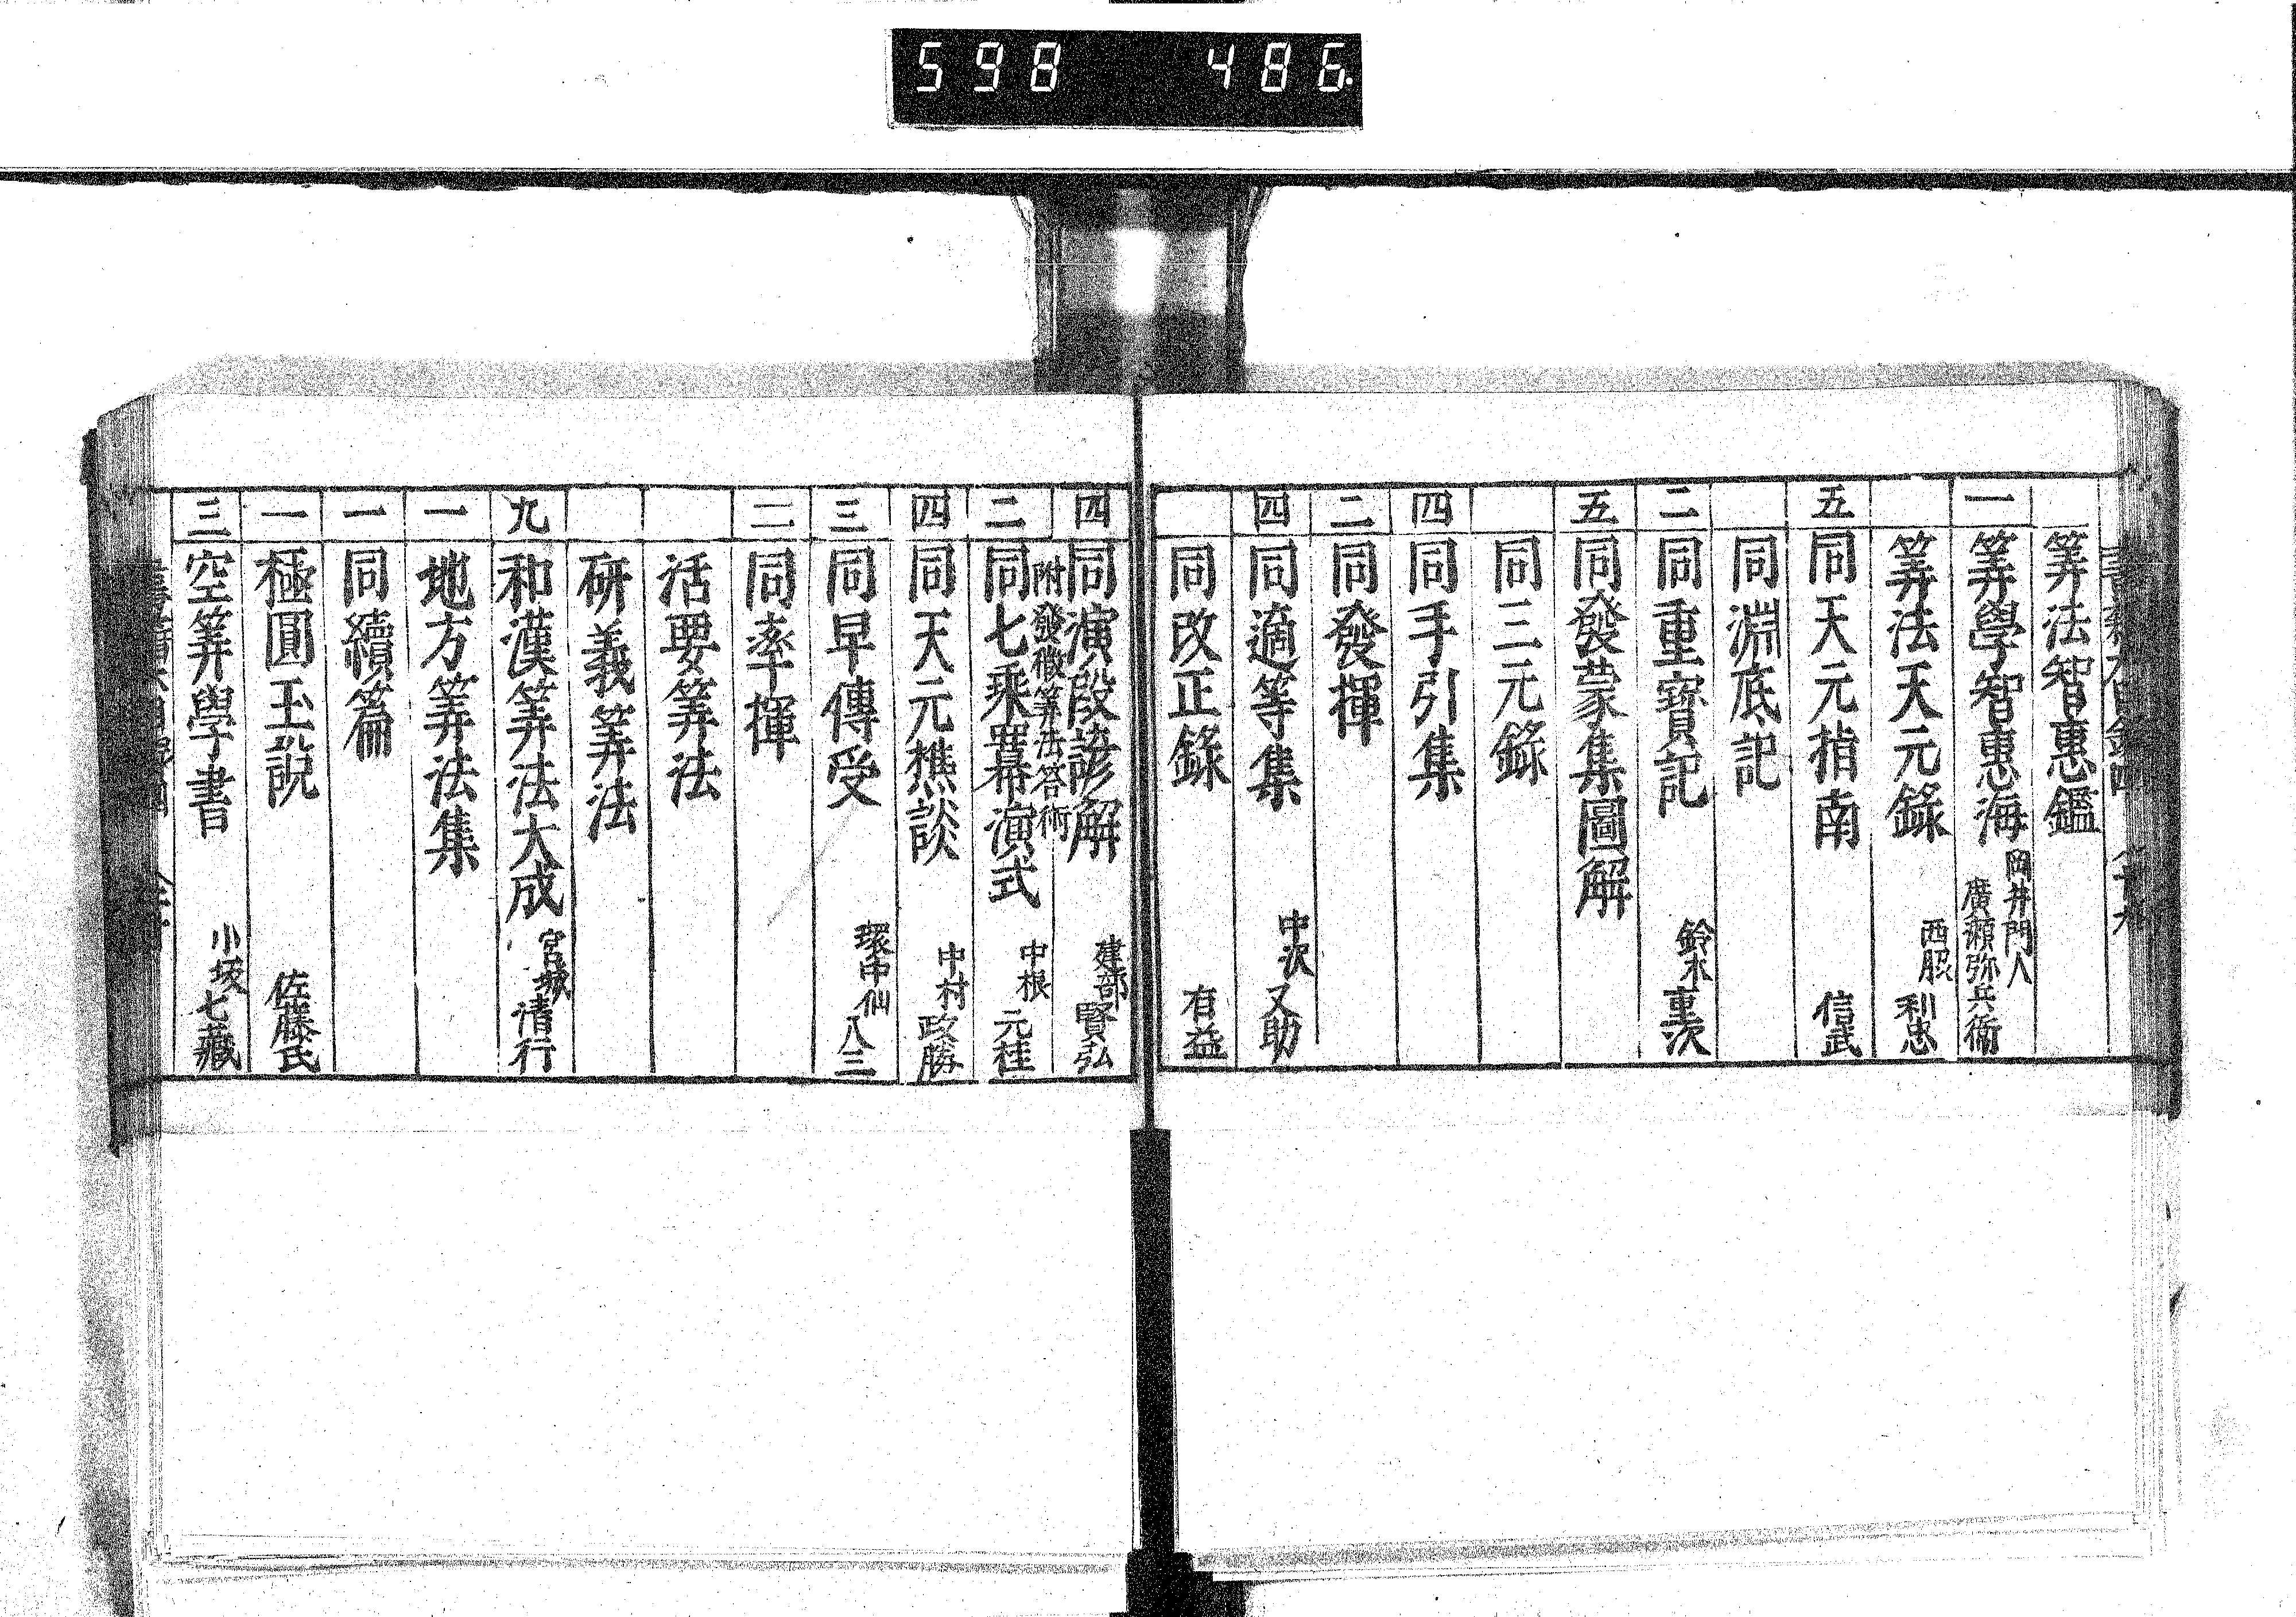 598 486.
筭法智惠鑑
一 筭學智惠海 岡井門人 廣瀬弥兵衞
筭法天元錄 西脇 利忠
五 同天元指南 信武
同淵底記
二 同重寳記 鈴木重次
五 同發蒙集圖解
同三元錄
四 同手引集
二 同發揮
四 同適等集 中沢又助
同改正錄 有益
四 同演段諺解 建部賢弘
附發微筭法答術
二 同七乘冪演式 中根元桂
四 同天元樵談 中村政勝
三 同早傳受 環中仙八三
二 同率揮
活要筭法
研義筭法
九 和漢筭法大成 宮城清行
一 地方筭法集
一 同續篇
一 極圓玉説 佐藤氏
三 空筭學書 小坂七藏